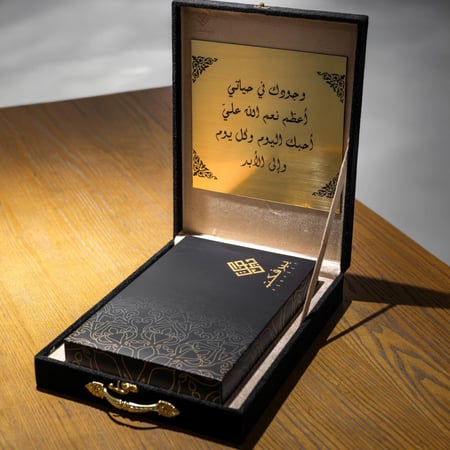 وجودك في حياتي
أعظم نعم الله عليّ
أحبك اليوم وكل يوم
وإلى الأبد
بيرفكت